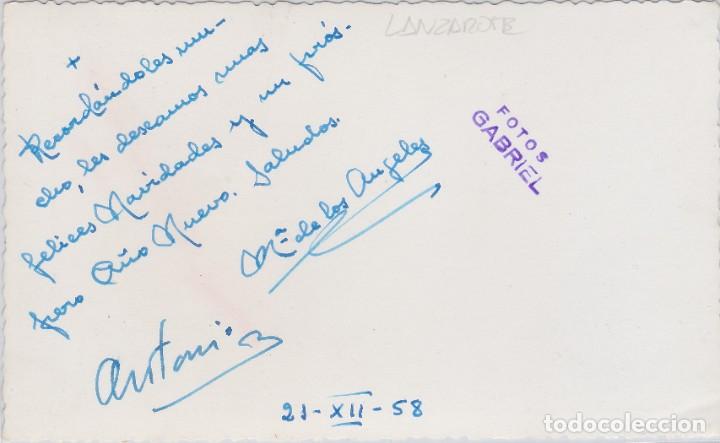 LANZAROTE
+
Recordándoles mu-
cho, les deseamos unas
felices Navidades y un prós-
pero Año Nuevo. Saludos.
Mª de los Angeles
Antonio
FOTOS
GABRIEL
21-XII-58
todocoleccion.net